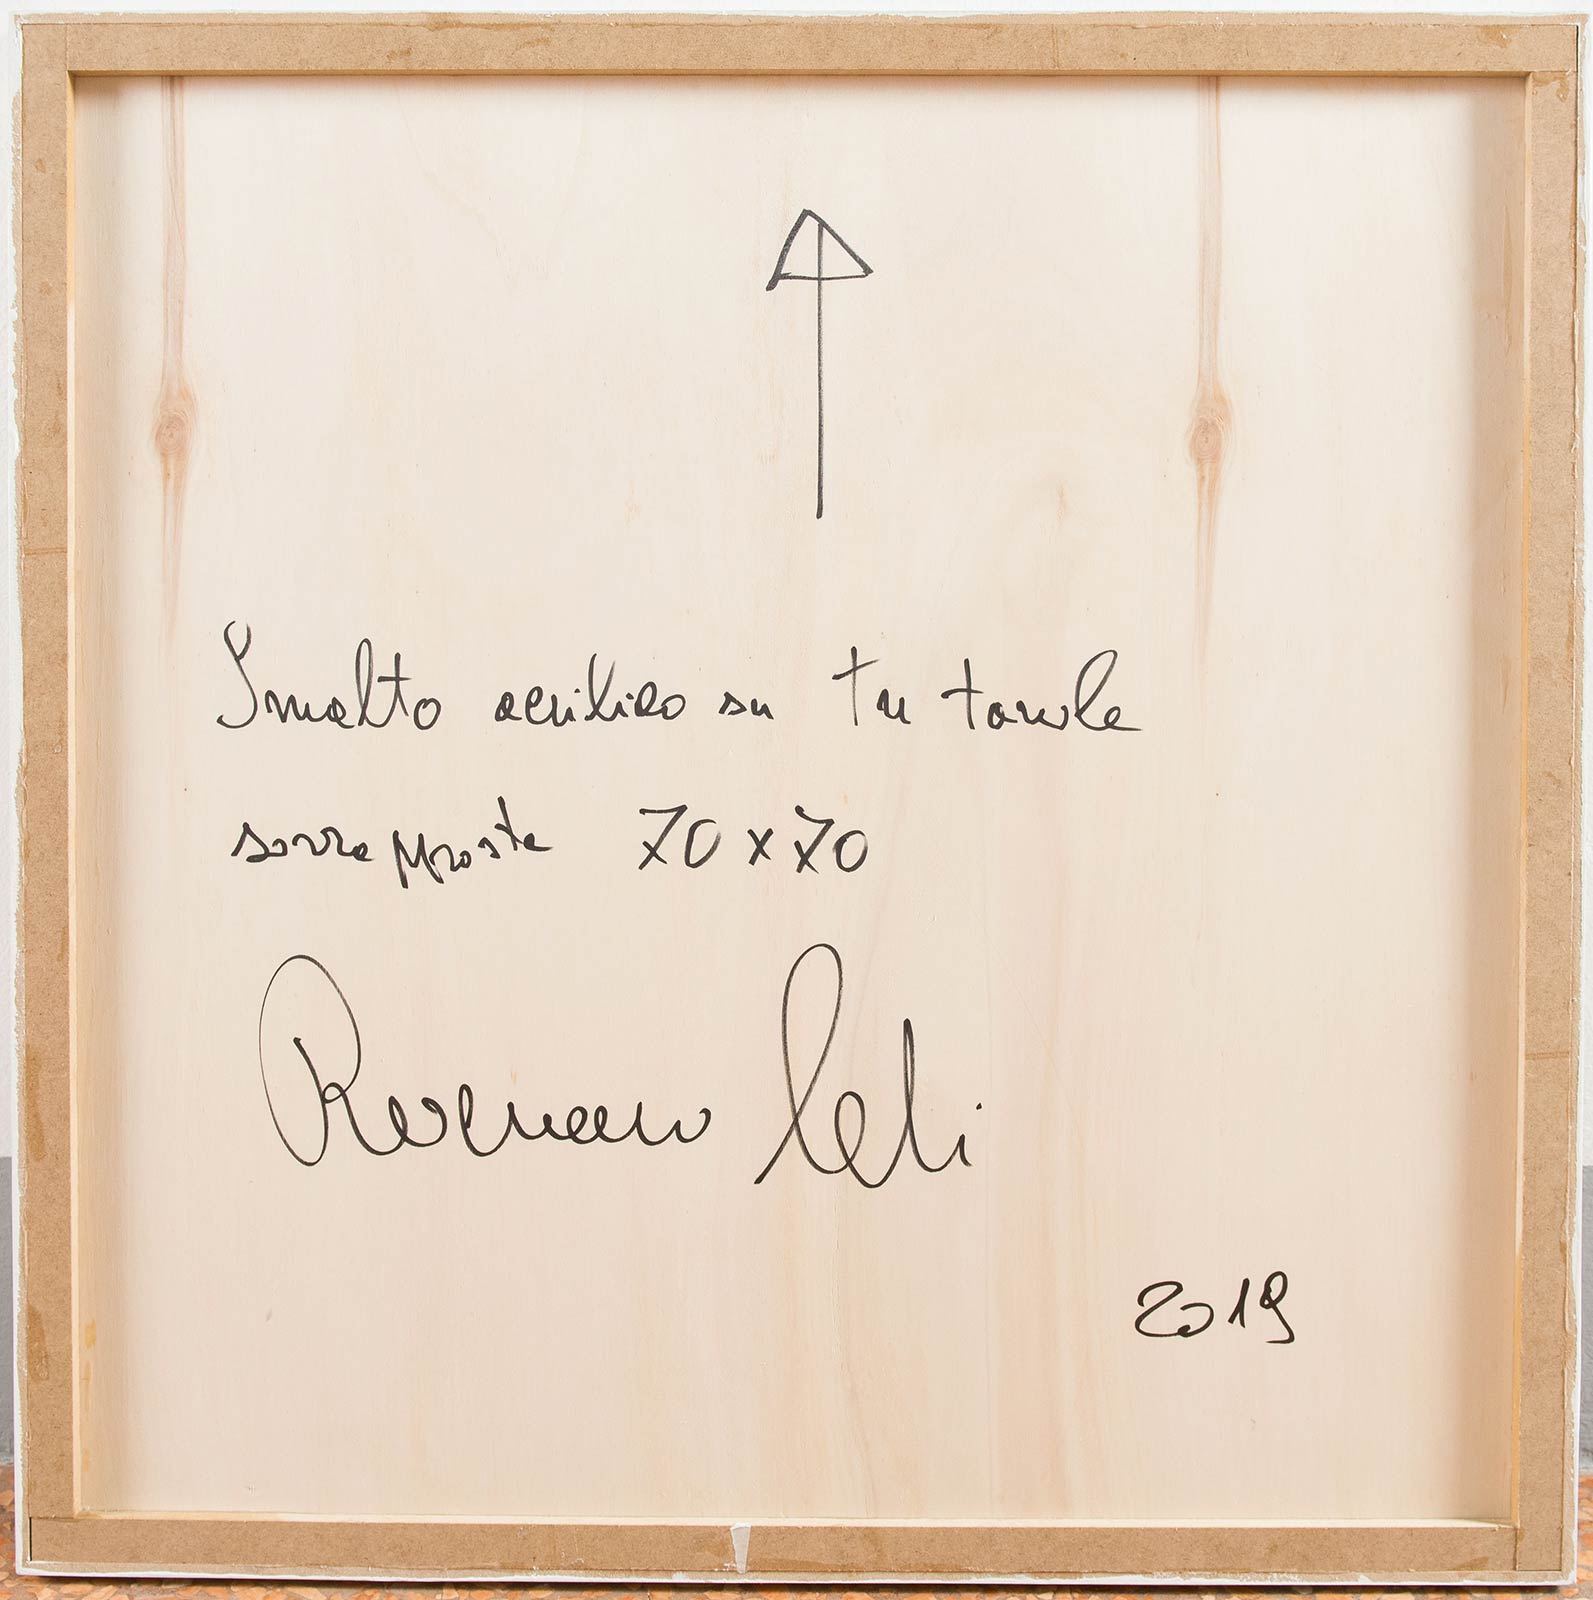 Smalto acrilico su tre tavole
sovrapposte 70x70
Romano
2019